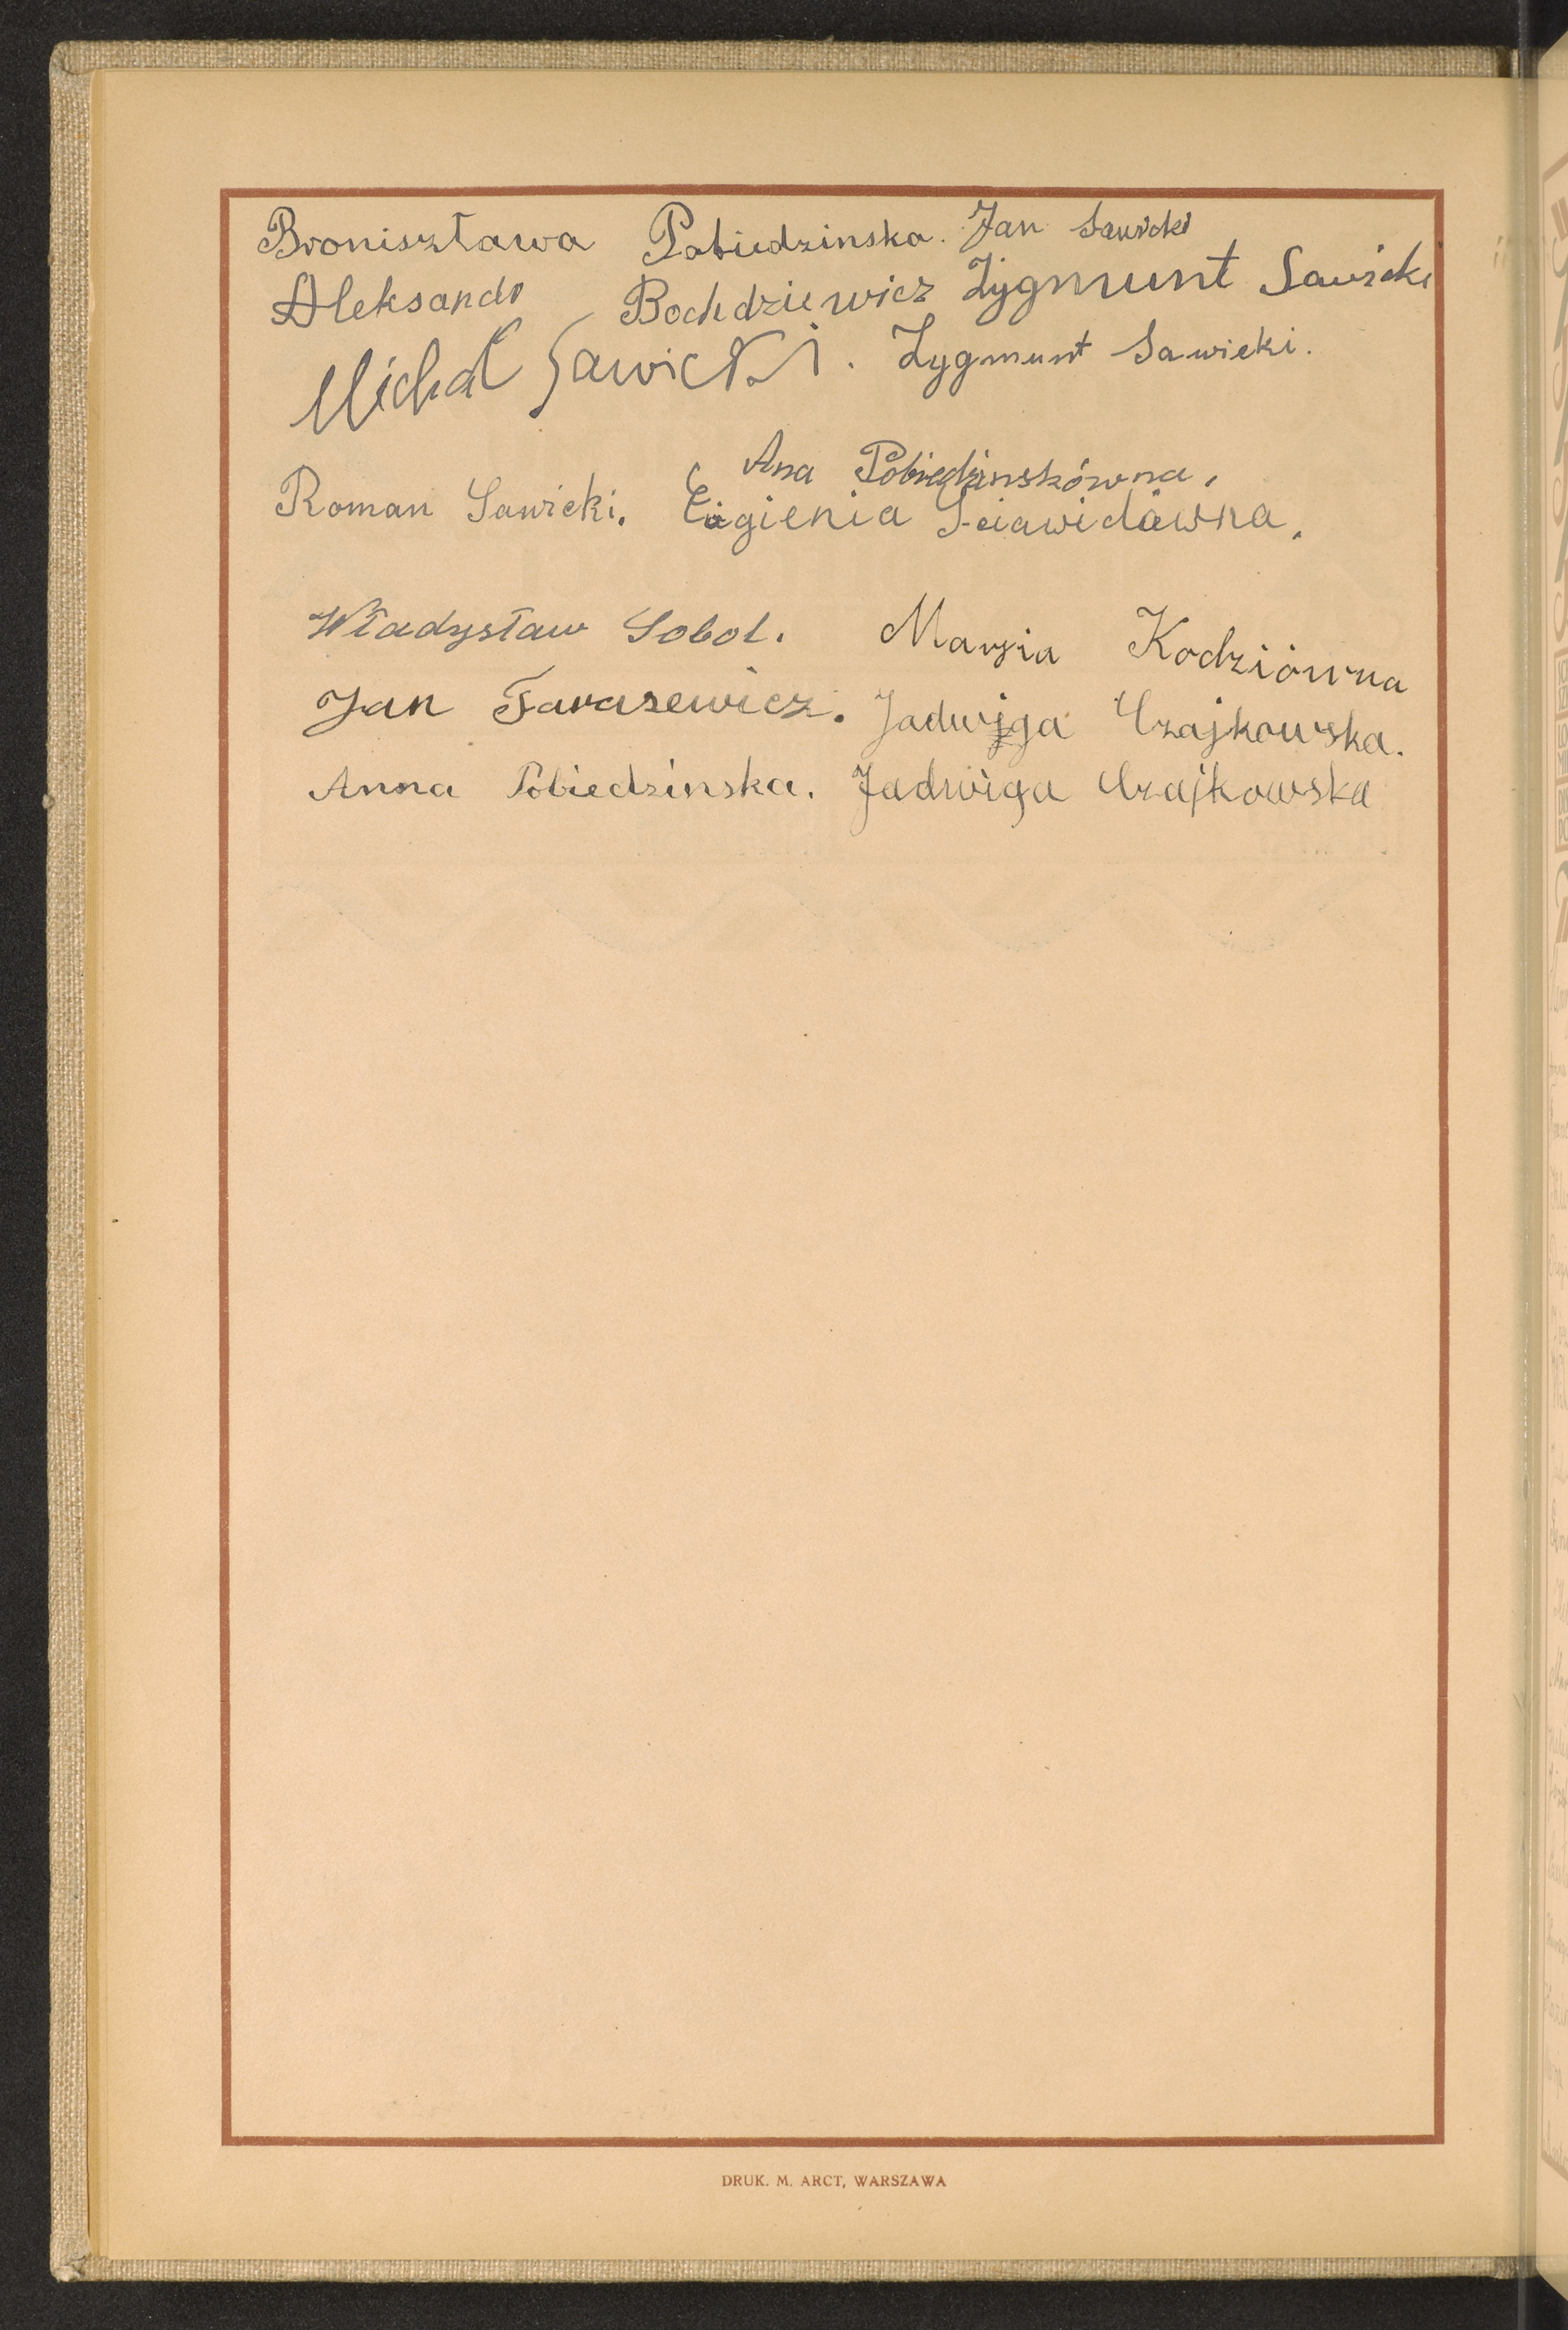 Broniszława Pobiedzinska. Jan Sawicki
Aleksandr Bochdziewicz Zygmunt Sawicki
Michał Sawicki. Zygmunt Sawicki.
Ana Pobiedzinskówna,
Roman Sawicki. Eugienia
Władysław Sobol. Marsia Kodziówna
Jan Tarasewicz. Jadwiga Czajkowska.
Anna Pobiedzinska. Jadwiga Czajkowska
DRUK. M. ARCT, WARSZAWA